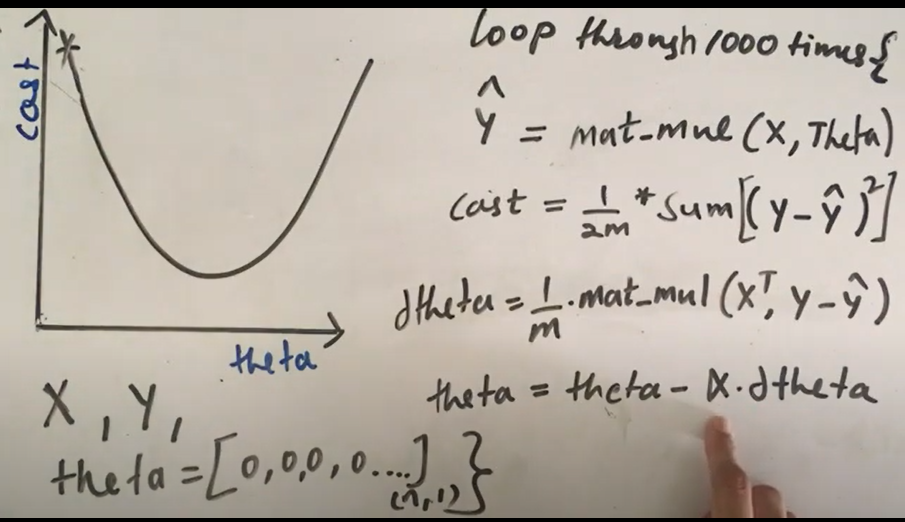 cost
theta
X, Y,
theta = [0,0,0,0....] (n,1)
loop through 1000 times {
Ŷ = mat-mul (X, Theta)
cost = 1/2m * Sum[(Y-Ŷ)²]
dtheta = 1/m . mat-mul (Xᵀ, Y-Ŷ)
theta = theta - α . dtheta
}